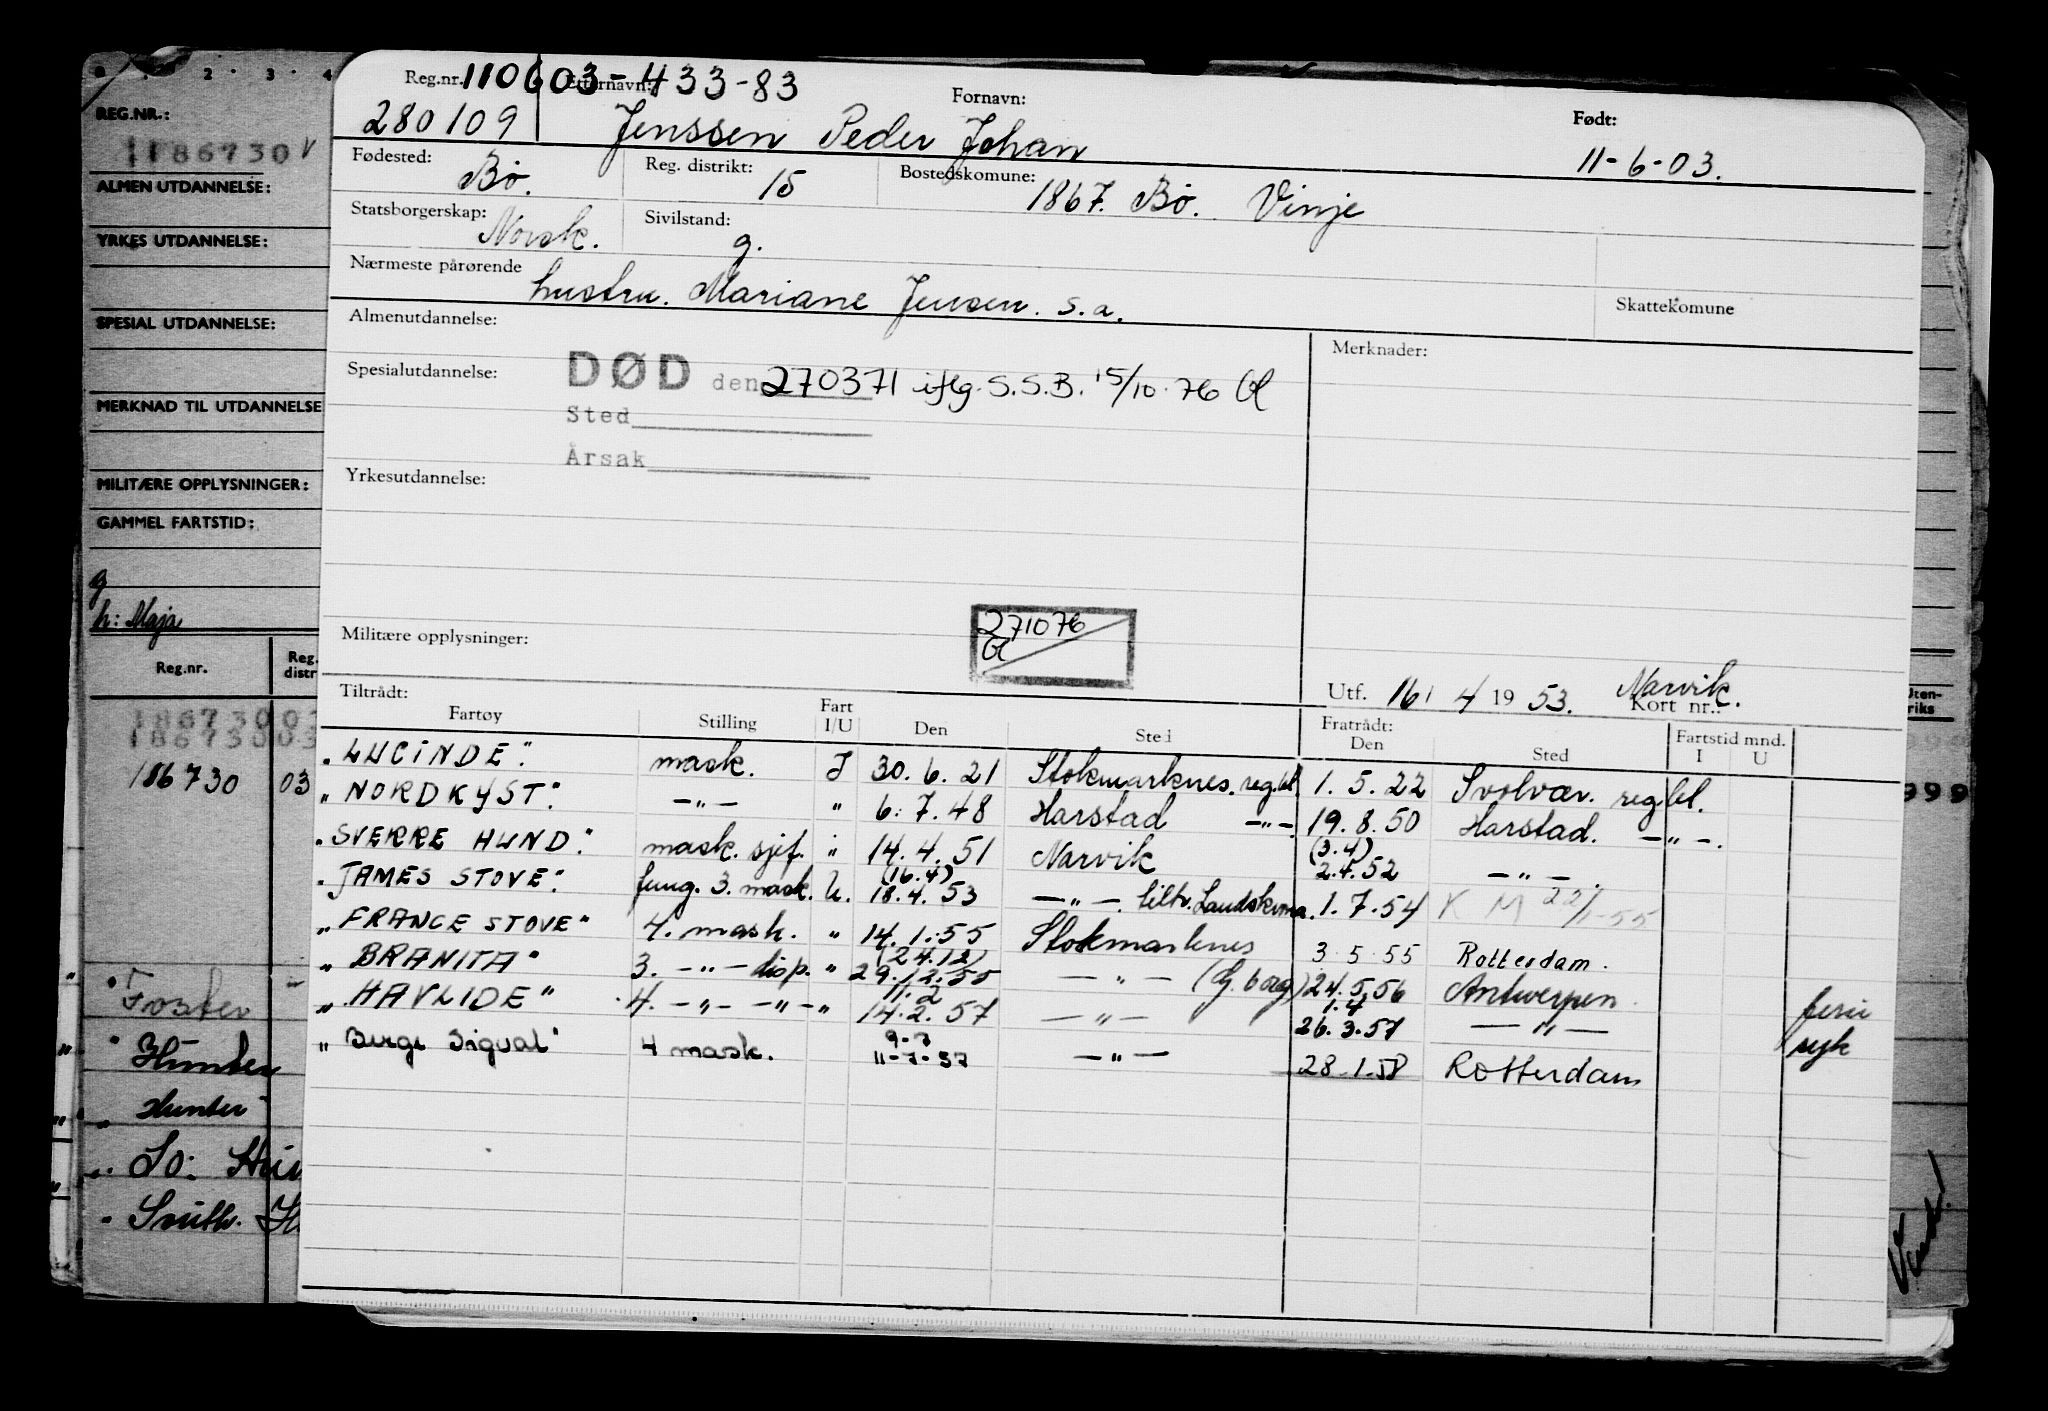 Reg.nr. 110603-433-83 Etternavn: Fornavn: Født:
280109 Jenssen Peder Johan 11-6-03.
Fødested: Bø. Reg. distrikt: 15 Bostedskomune: 1867. Bø. Vinje
Statsborgerskap: Norsk. Sivilstand: g.
Nærmeste pårørende hustru. Mariane Jensen. s.a. Skattekomune
Almenutdannelse: Merknader:
Spesialutdannelse: DØD den 270371 iflg. S.S.B. 15/10-76
Sted
Årsak
Yrkesutdannelse:
271076
Militære opplysninger:
Utf. 16/4 1953. Narvik. Kort nr.:
Tiltrådt: Fratrådt:
Fartøy Stilling Fart I/U Den Sted Den Sted Fartstid mnd. I U
"LUCINDE". mask. I 30.6.21 Stokmarknes. reg.bl. 1.5.22 Svolvær. reg.bl.
"NORDKYST". —"— " 6.7.48 Harstad —"—. 19.8.50 Harstad. —"—.
"SVERRE HUND". mask. sjef. " 14.4.51 Narvik (3.4) 2.4.52 —"—.
"JAMES STOVE". fung. 3. mask. U. (16.4) 18.4.53 —"—. tiltr. Landskrona. 1.7.54 K M 22/1-55
"FRANCE STOVE" 4. mask. " 14.1.55 Stokmarknes 3.5.55 Rotterdam.
"BRANITA" 3. —"— disp. " (24.12) 29.12.55 —"— (G.borg) 24.5.56 Antwerpen. ferie
"HAVLIDE" 4. —"— —"— " 11.2 14.2.57 —"— 1.4 26.3.57 —"— syk
"Berge Sigval" 4 mask. 9-7 11-7-57 —"— 28.1.58 Rotterdam
0 1 2 3 4
REG.NR.:
186730 V
ALMEN UTDANNELSE:
YRKES UTDANNELSE:
SPESIAL UTDANNELSE:
MERKNAD TIL UTDANNELSE
MILITÆRE OPPLYSNINGER:
GAMMEL FARTSTID:
g
h: Maja
Reg.nr. Reg. distr
186730 03
186730 03
186730 03
Foster
Hunter
Hunter
So:
Smith.
Uten-riks
999
Vend!